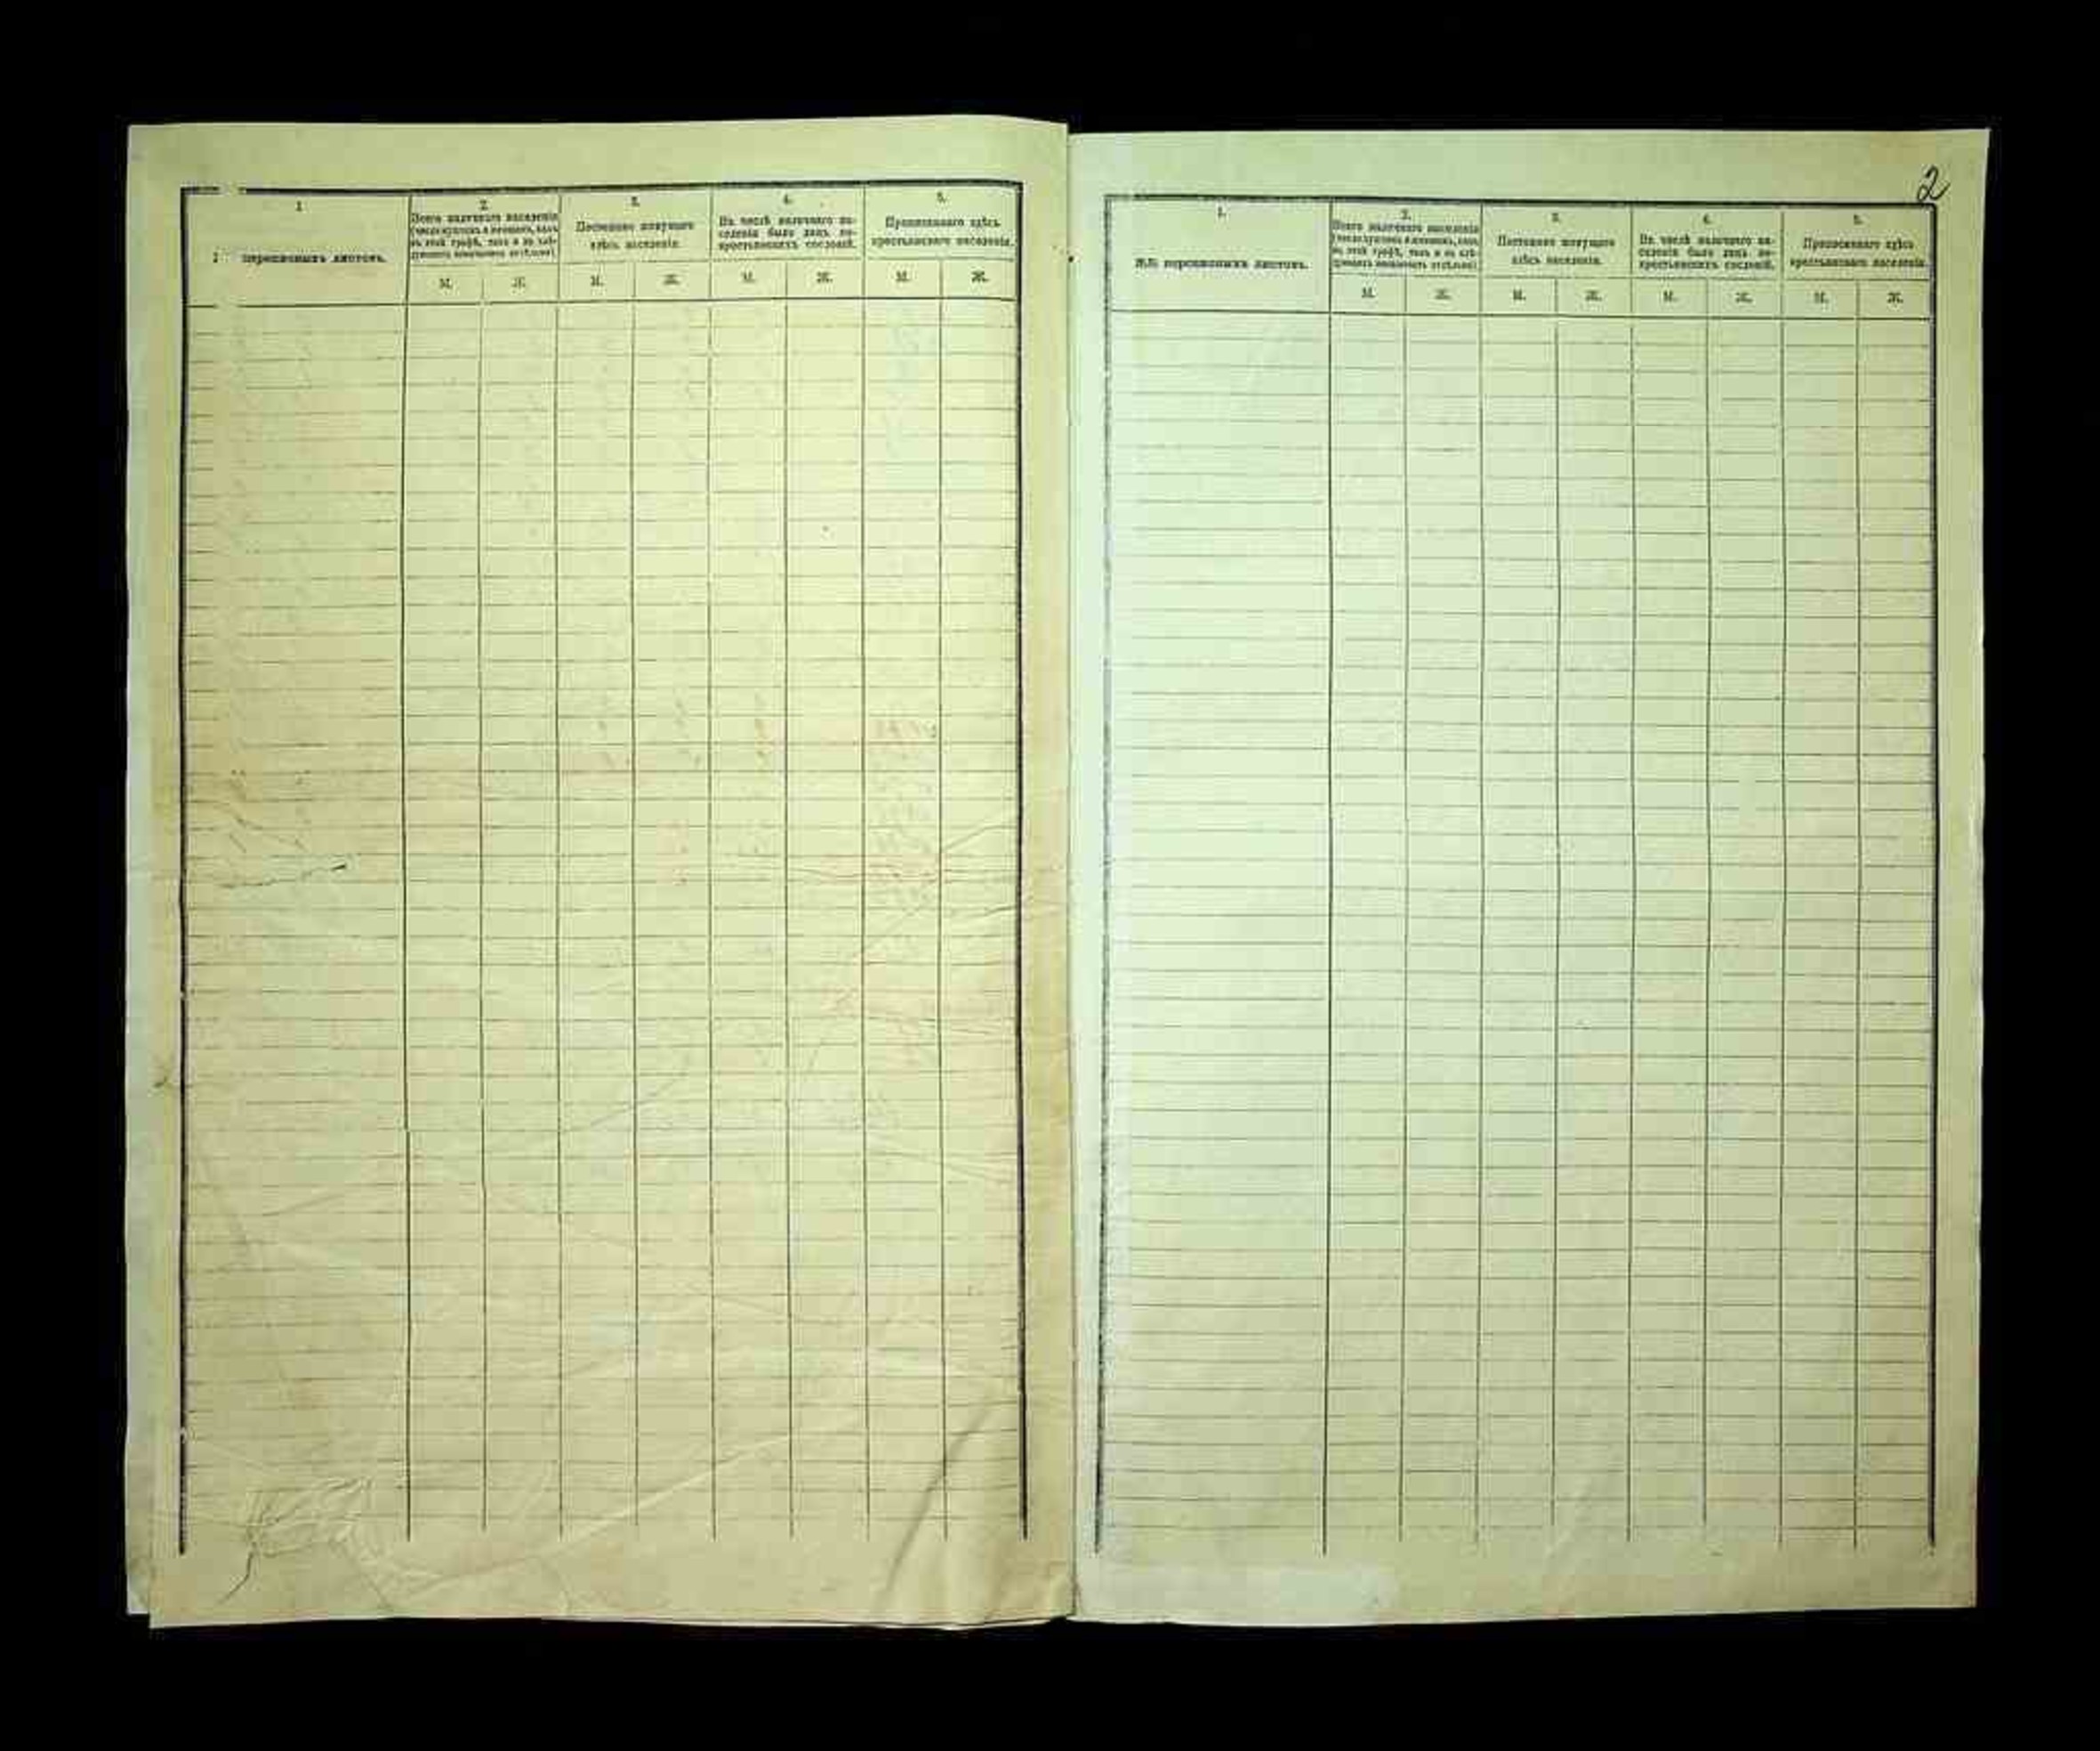 1
переписныхъ листовъ.
2.
Всего наличнаго населенія
(число мужчинъ и женщинъ, какъ
въ этой графѣ, такъ и въ слѣ-
дующихъ показывать отдѣльно).
М. Ж.
3.
Постоянно живущаго
здѣсь населенія.
М. Ж.
4.
Въ числѣ наличнаго на-
селенія было лицъ не-
крестьянскихъ сословій.
М. Ж.
5.
Приписаннаго здѣсь
крестьянскаго населенія.
М. Ж.
2
1.
№№ переписныхъ листовъ.
2.
Всего наличнаго населенія
(число мужчинъ и женщинъ, какъ
въ этой графѣ, такъ и въ слѣ-
дующихъ показывать отдѣльно).
М. Ж.
3.
Постоянно живущаго
здѣсь населенія.
М. Ж.
4.
Въ числѣ наличнаго на-
селенія было лицъ не-
крестьянскихъ сословій.
М. Ж.
5.
Приписаннаго здѣсь
крестьянскаго населенія.
М. Ж.